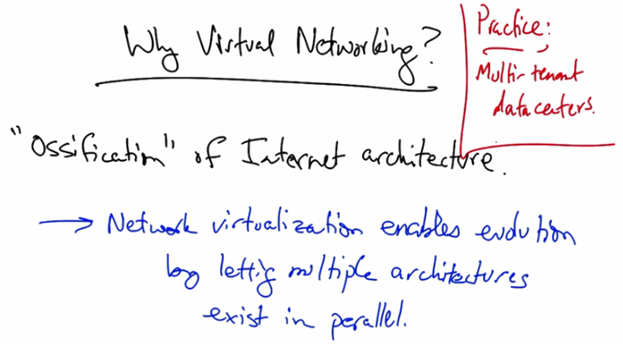 Why Virtual Networking?
Practice:
Multi-tenant
datacenters.
"Ossification" of Internet architecture.
→ Network virtualization enables evolution
by lettig multiple architectures
exist in parallel.